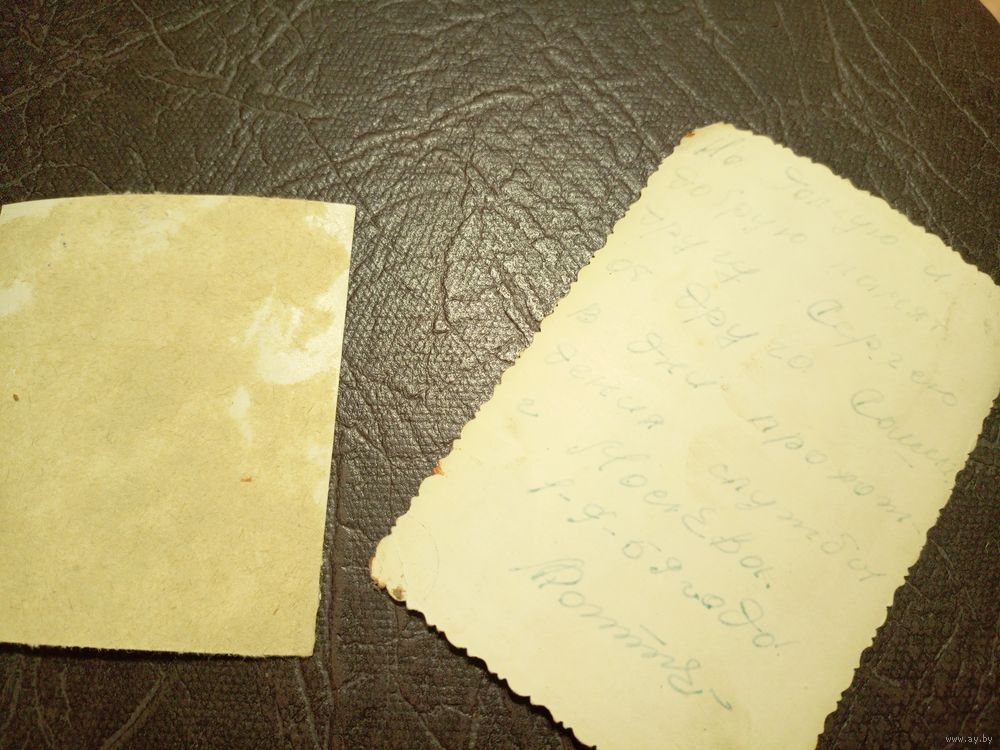 На долгую и
добрую память
другу Сергею
от друга Саши
в дни прохож
дения службы
г. Москва.
1-9-59 года
www.ay.by